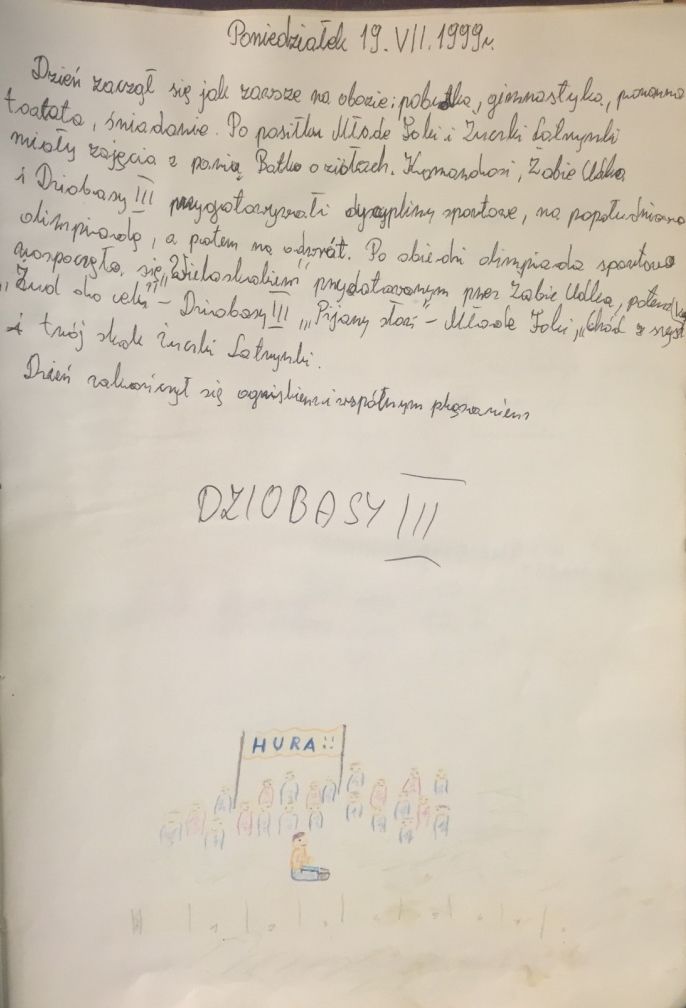 Poniedziałek 19.VII.1999r.
Dzień zaczął się jak zawsze na obozie: pobudka, gimnastyka, poranna
toaleta, śniadanie. Po posiłku Młode Foki i Żuczki Latrynki
miały zajęcia z panią Batko o ziołach. Komandosi, Żabie Udka
i Dziobasy III przygotowywali dyscypliny sportowe, na popołudniową
olimpiadę, a potem na odwrót. Po obiedzie olimpiada sportowa
rozpoczęła się „Wieloskokiem" przez Żabie Udka, potem
„Rzut do celu" – Dziobasy III „Pijany słoń" – Młode Foki, „Chód z
i trój skok Żuczki Latrynki.
Dzień zakończył się ogniskiem i wspólnym pląsaniem
DZIOBASY III
HURA!!